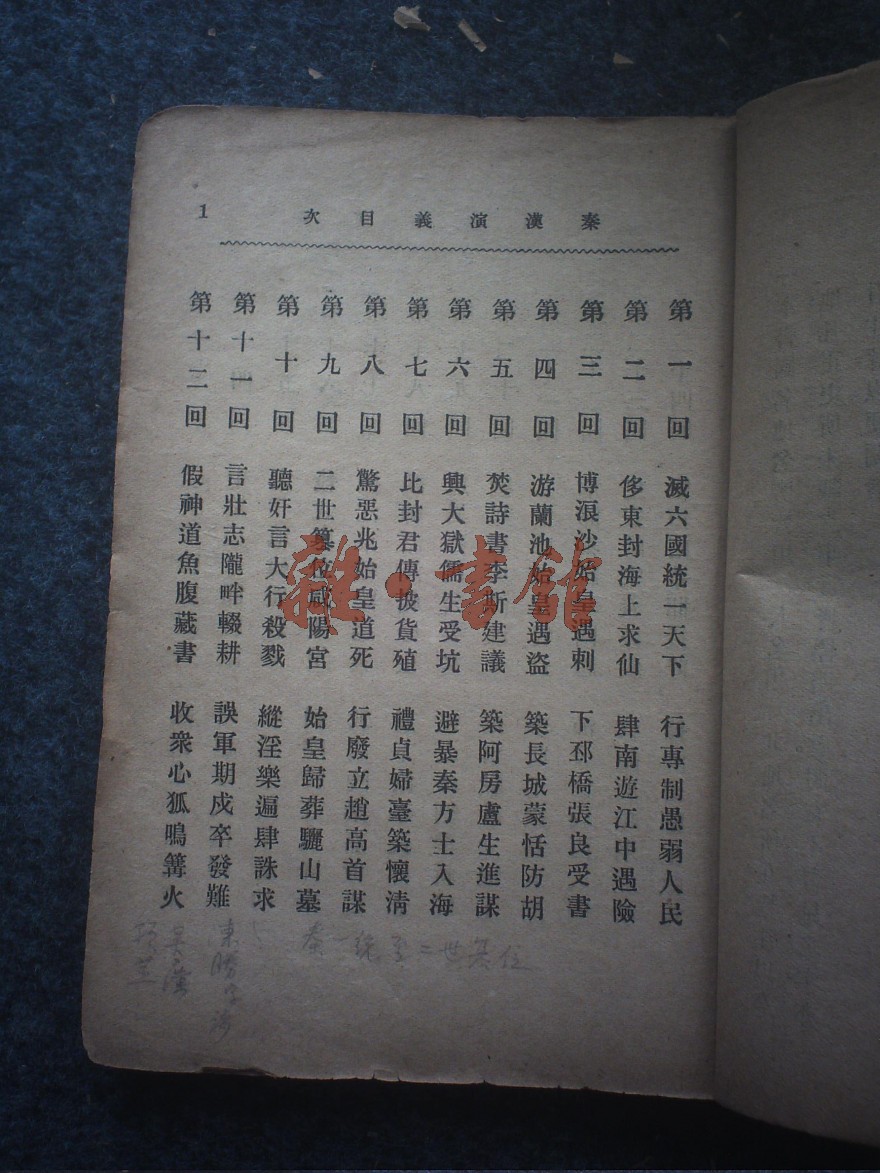 秦漢演義目次
1
第一回 滅六國統一天下 行專制愚弱人民
第二回 侈東封海上求仙 肆南遊江中遇險
第三回 博浪沙始皇遇刺 下邳橋張良受書
第四回 游蘭池始皇遇盜 築長城蒙恬防胡
第五回 焚詩書李斯建議 築阿房盧生進謀
第六回 興大獄儒生受坑 避暴秦方士入海
第七回 比封君傳披貨殖 禮貞婦臺築懷清
第八回 驚惡兆始皇道死 行廢立趙高首謀
第九回 二世篡位咸陽宮 始皇歸葬驪山墓
第十回 聽奸言大行殺戮 縱淫樂遍肆誅求
第十一回 言壯志隴畔輟耕 誤軍期戍卒發難
第十二回 假神道魚腹藏書 收衆心狐鳴篝火
秦一統至二世
雜·書館